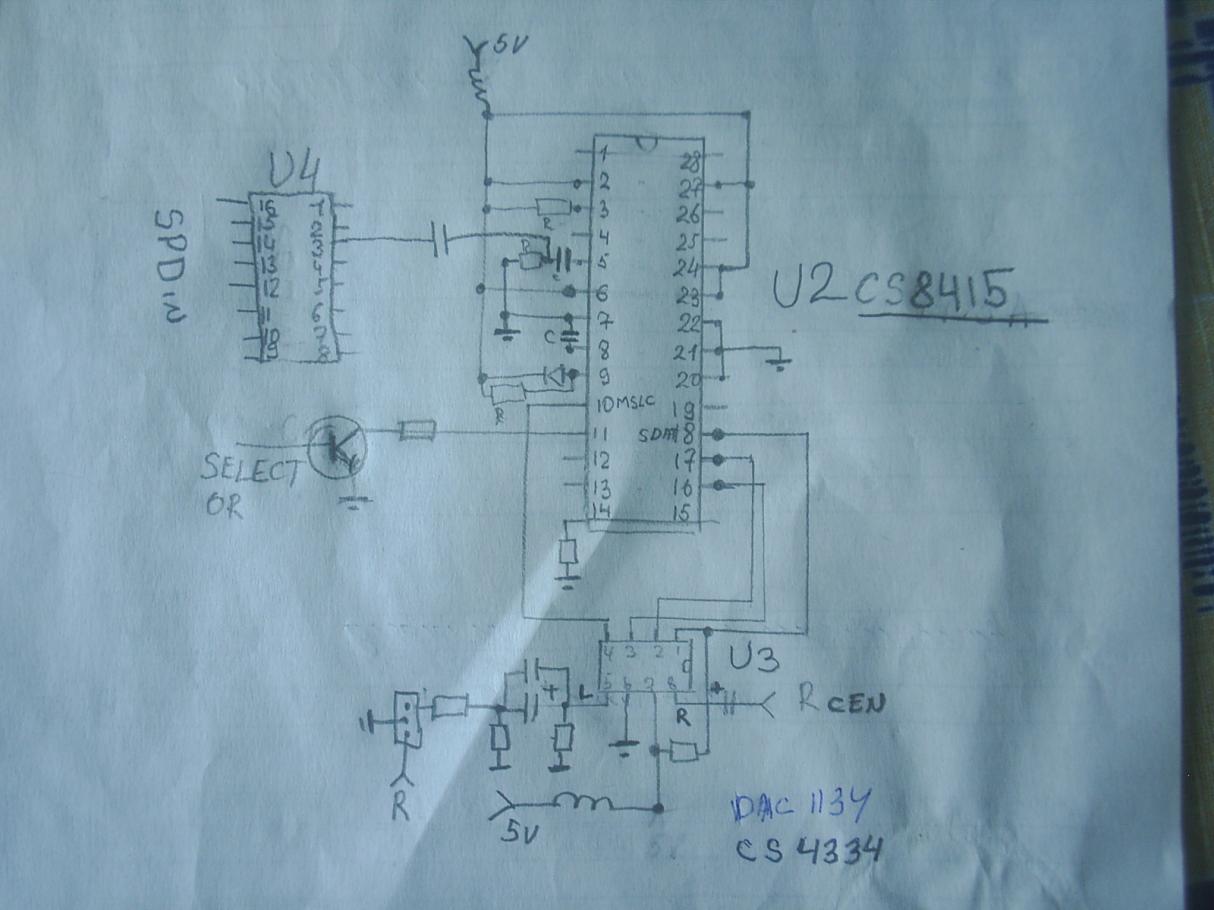 5V
U4
SPDin
16 1
2
3
13
12
6
7
10
9 8
1 28
2 27
3 26
R
4 25
R
5 24
C
6 23
7 22
C
8 21
9 20
R
10 MSLC 19
11 18
12 17
13 16
14 15
U2 CS8415
SELECT
OR
K
4 3 2 1
U3
5 6 7 8
L
+
+
R
R CEN
R
5V
DAC 1134
CS 4334